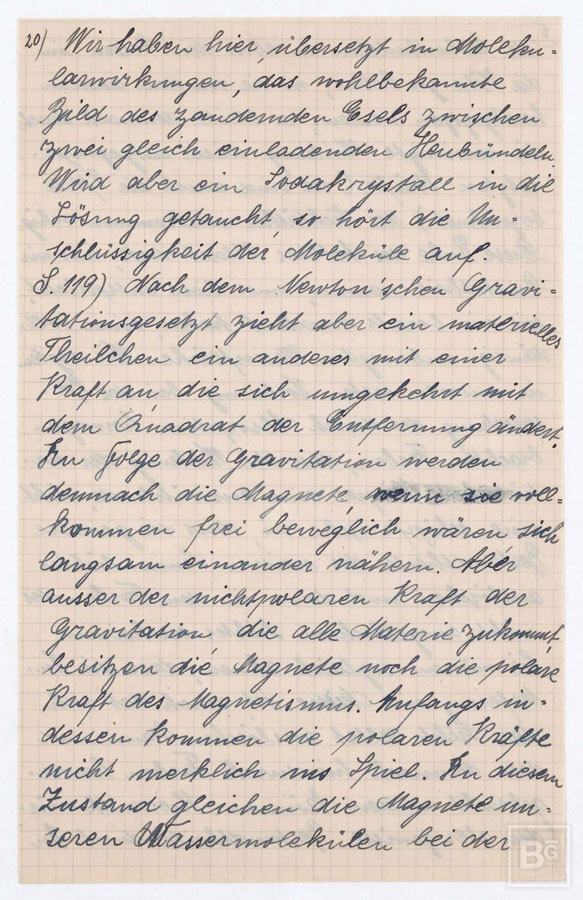 20) Wir haben hier, übersetzt in Moleku-
larwirkungen, das wohlbekannte
Bild des zaudernden Esels zwischen
zwei gleich einladenden Heubündeln.
Wird aber ein Sodakrystall in die
Lösung getaucht, so hört die Un-
schlüssigkeit der Moleküle auf.
S. 119) Nach dem Newton'schen Gravi-
tationsgesetzt zieht aber ein materielles
Theilchen ein anderes mit einer
Kraft an die sich umgekehrt mit
dem Quadrat der Entfernung ändert.
In Folge der Gravitation werden
demnach die Magnete, wenn sie voll-
kommen frei beweglich wären sich
langsam einander nähern. Aber
ausser der nichtpolaren Kraft der
Gravitation, die alle Materie zukommt
besitzen die Magnete noch die polare
Kraft des Magnetismus. Anfangs in-
dessen kommen die polaren Kräfte
nicht merklich ins Spiel. In diesem
Zustand gleichen die Magnete un-
seren Wassermolekülen bei der
BG